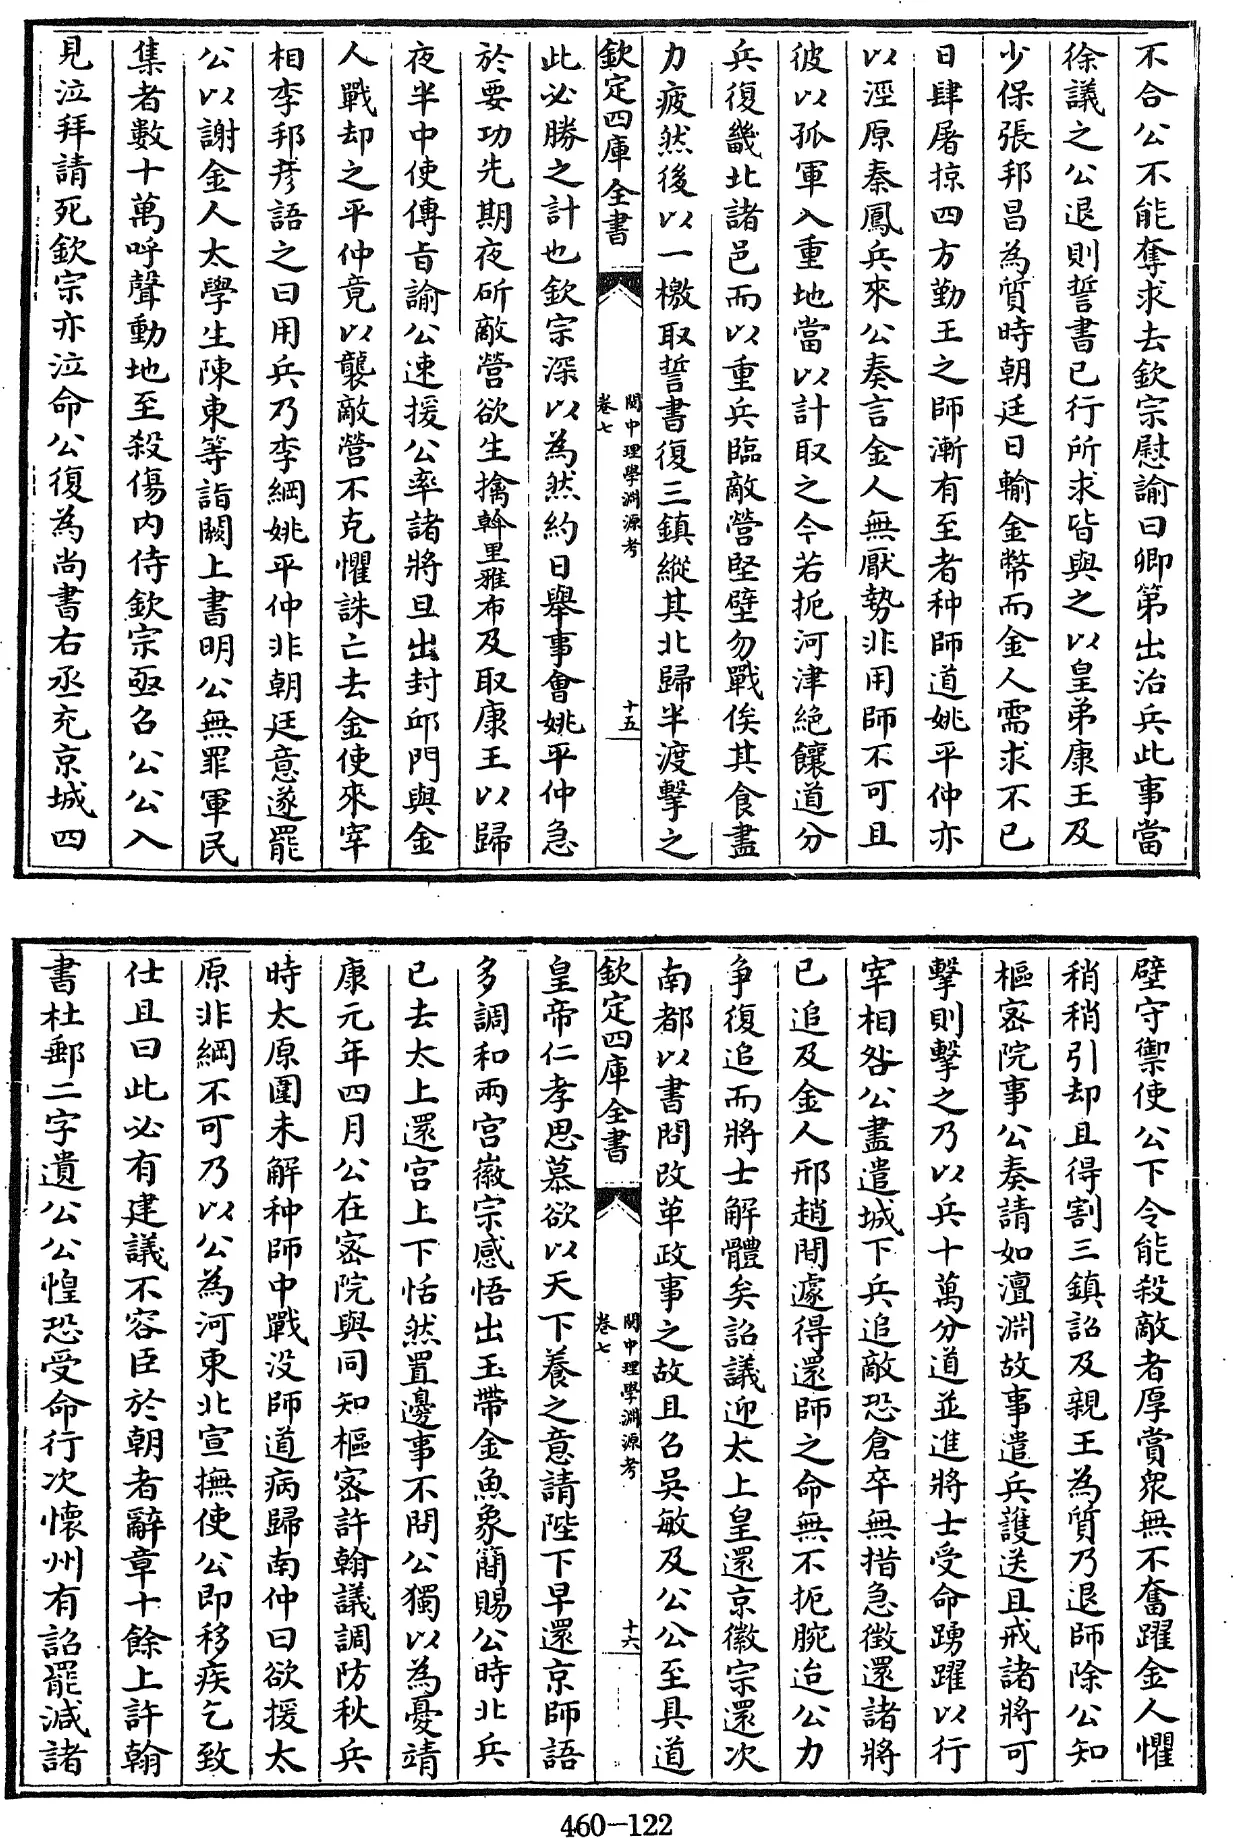 不合公不能奪求去欽宗慰諭曰卿第出治兵此事當
徐議之公退則誓書已行所求皆與之以皇弟康王及
少保張邦昌為質時朝廷日輸金幣而金人需求不已
日肆屠掠四方勤王之師漸有至者种師道姚平仲亦
以涇原秦鳳兵來公奏言金人無厭勢非用師不可且
彼以孤軍入重地當以計取之今若扼河津絶饟道分
兵復畿北諸邑而以重兵臨敵營堅壁勿戰俟其食盡
力疲然後以一檄取誓書復三鎮縱其北歸半渡擊之
欽定四庫全書
閩中理學淵源考
卷七
十五
此必勝之計也欽宗深以為然約日舉事會姚平仲急
於要功先期夜斫敵營欲生擒斡里雅布及取康王以歸
夜半中使傳旨諭公速援公率諸將旦出封邱門與金
人戰却之平仲竟以襲敵營不克懼誅亡去金使來宰
相李邦彦語之曰用兵乃李綱姚平仲非朝廷意遂罷
公以謝金人太學生陳東等詣闕上書明公無罪軍民
集者數十萬呼聲動地至殺傷内侍欽宗亟召公公入
見泣拜請死欽宗亦泣命公復為尚書右丞充京城四
壁守禦使公下令能殺敵者厚賞衆無不奮躍金人懼
稍稍引却且得割三鎮詔及親王為質乃退師除公知
樞密院事公奏請如澶淵故事遣兵護送且戒諸將可
擊則擊之乃以兵十萬分道並進將士受命踴躍以行
宰相咎公盡遣城下兵追敵恐倉卒無措急徵還諸將
已追及金人邢趙間遽得還師之命無不扼腕迨公力
争復追而將士解體矣詔議迎太上皇還京徽宗還次
南都以書問改革政事之故且召吳敏及公公至具道
欽定四庫全書
閩中理學淵源考
卷七
十六
皇帝仁孝思慕欲以天下養之意請陛下早還京師語
多調和兩宫徽宗感悟出玉帶金魚象簡賜公時北兵
已去太上還宫上下恬然置邊事不問公獨以為憂靖
康元年四月公在密院與同知樞密許翰議調防秋兵
時太原圍未解种師中戰没師道病歸南仲曰欲援太
原非綱不可乃以公為河東北宣撫使公即移疾乞致
仕且曰此必有建議不容臣於朝者辭章十餘上許翰
書杜郵二字遺公公惶恐受命行次懷州有詔罷減諸
460-122